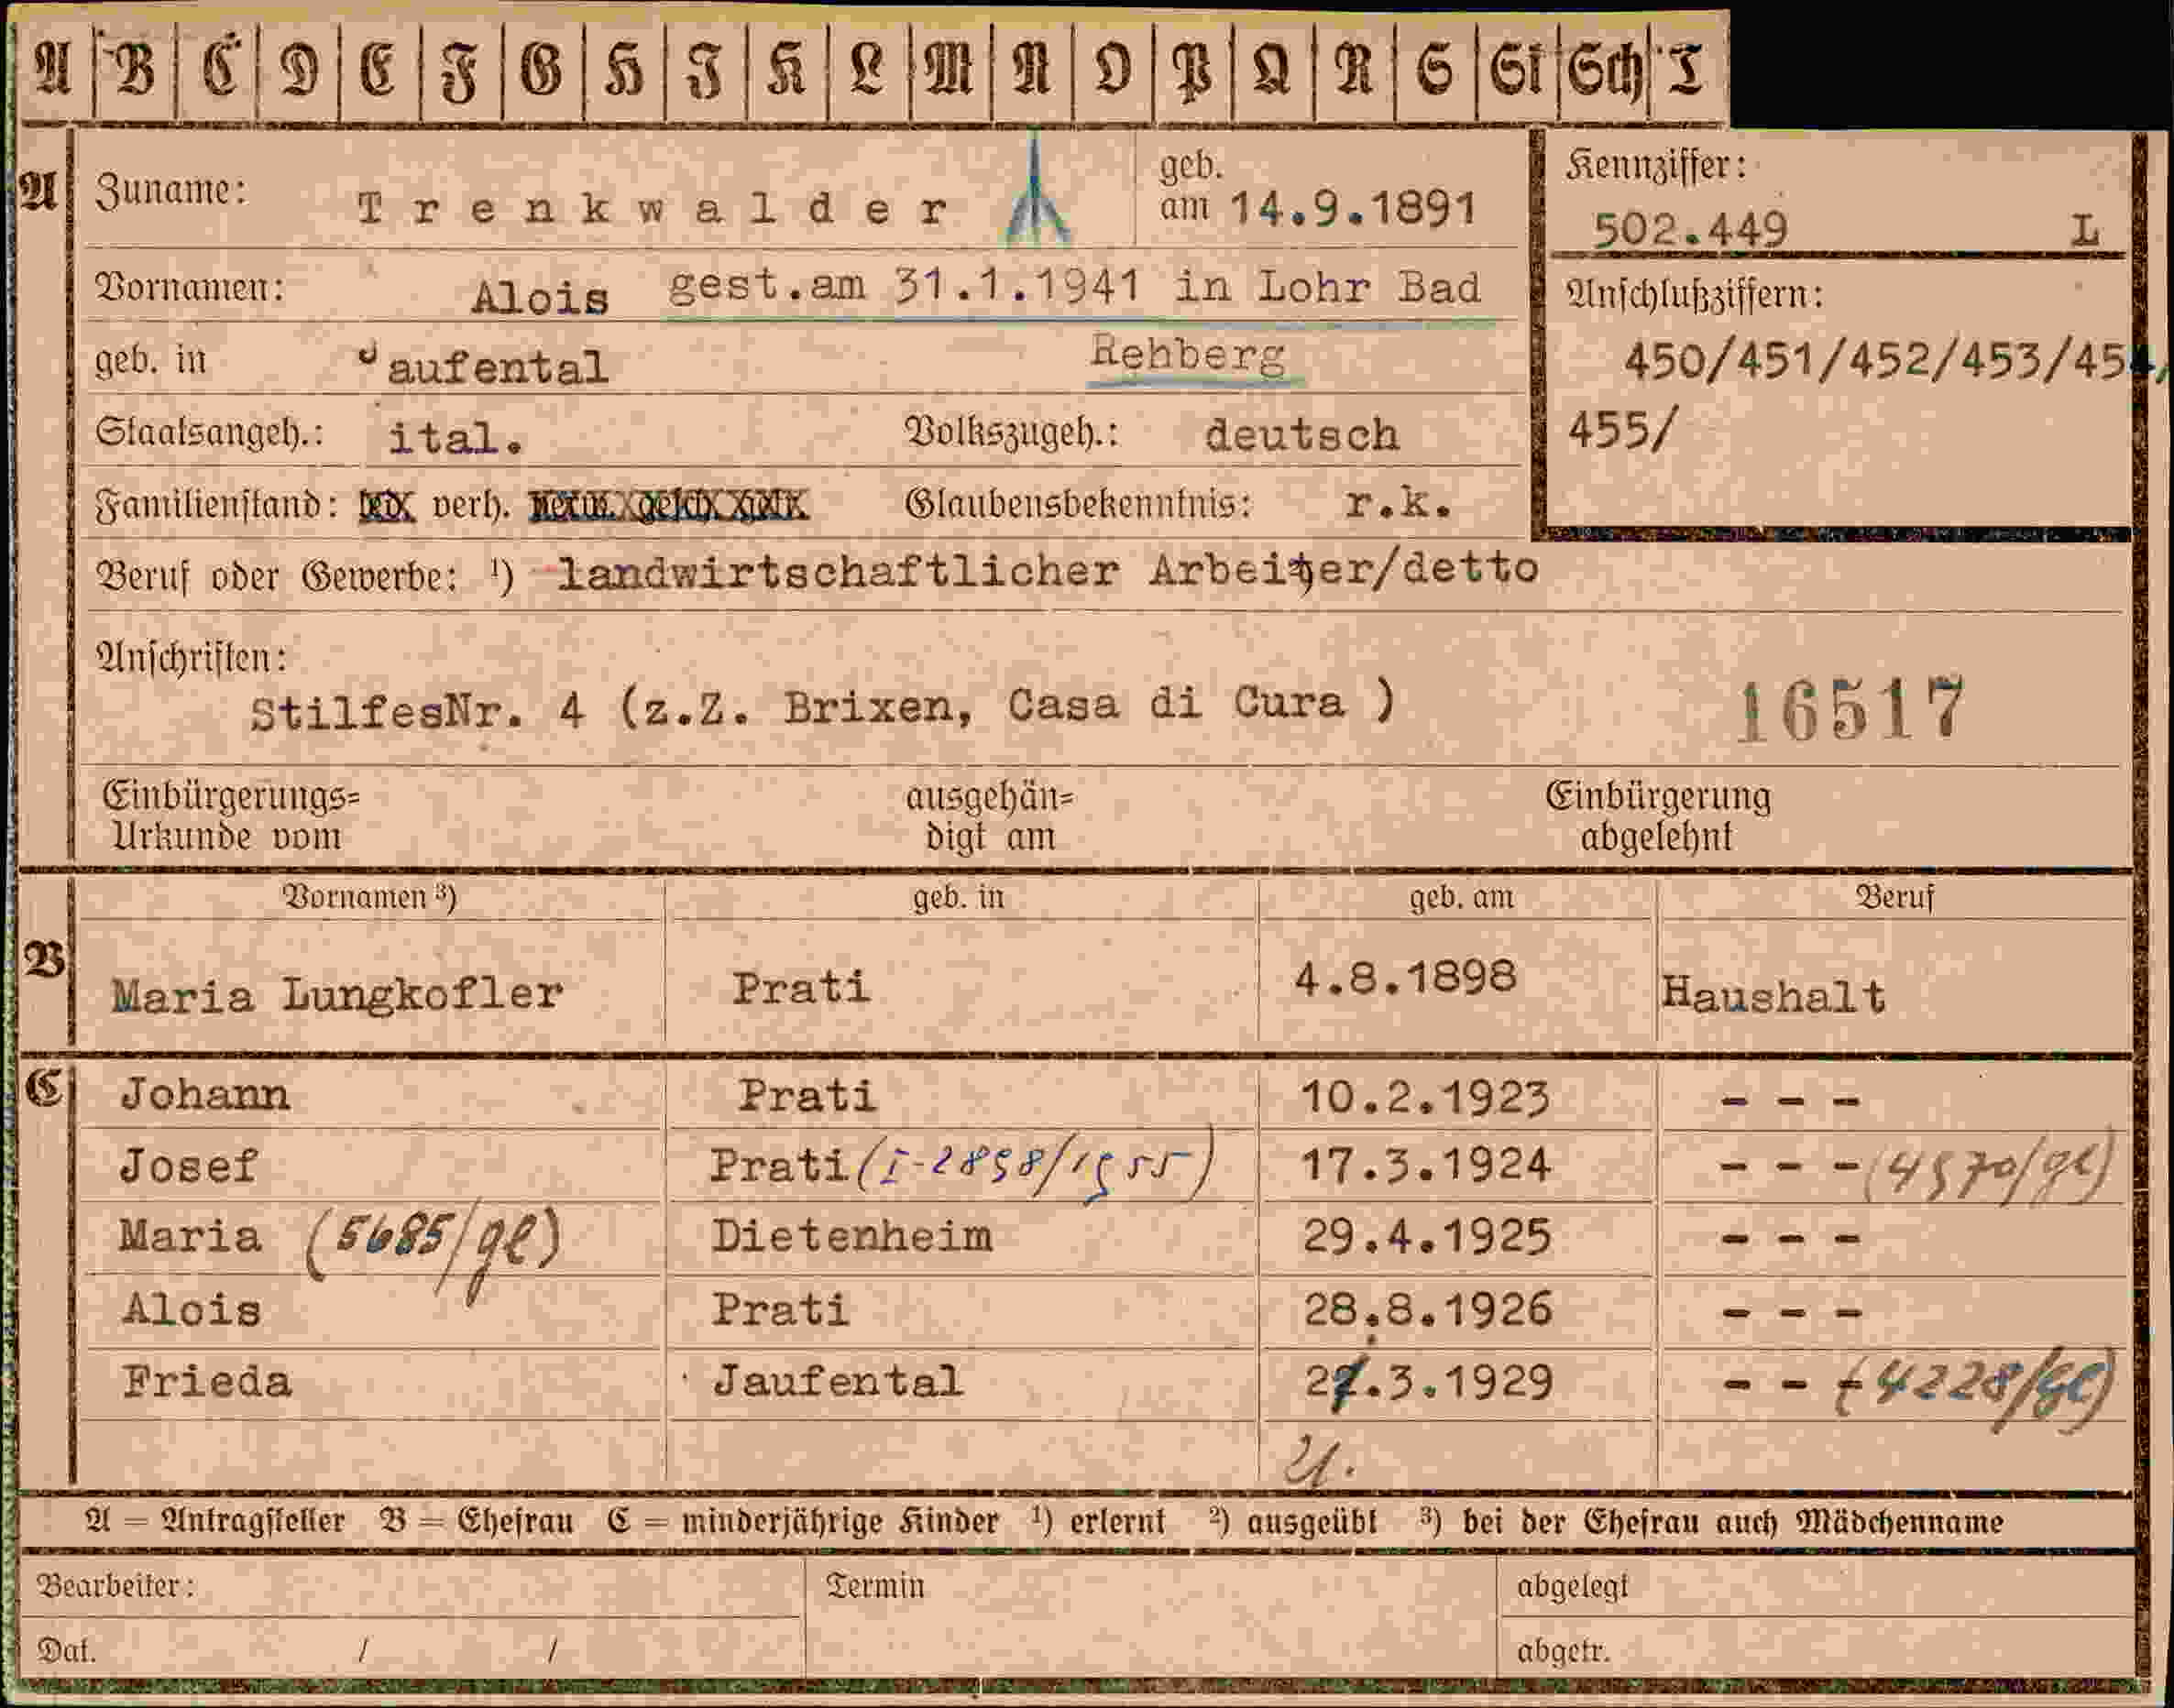 A B C D E F G H I K L M N O P Q R S St Sch T
A Zuname: Trenkwalder geb. am 14.9.1891
Kennziffer: 502.449 L
Vornamen: Alois gest.am 31.1.1941 in Lohr Bad
Rehberg
geb. in Jaufental
Anschlußziffern:
450/451/452/453/454/
455/
Staatsangeh.: ital. Volkszugeh.: deutsch
Familienstand: verh. Glaubensbekenntnis: r.k.
Beruf oder Gewerbe: ¹) landwirtschaftlicher Arbeiter/detto
Anschriften:
StilfesNr. 4 (z.Z. Brixen, Casa di Cura )
16517
Einbürgerungs= ausgehän= Einbürgerung
Urkunde vom digt am abgelehnt
Vornamen ³) geb. in geb. am Beruf
B Maria Lungkofler Prati 4.8.1898 Haushalt
C Johann Prati 10.2.1923 - - -
Josef Prati (I-2898/1955) 17.3.1924 - - - (4970/gl)
Maria (5685/gl) Dietenheim 29.4.1925 - - -
Alois Prati 28.8.1926 - - -
Frieda Jaufental .3.1929 - - - (4228/gl)
21.
A = Antragsteller B = Ehefrau C = minderjährige Kinder ¹) erlernt ²) ausgeübt ³) bei der Ehefrau auch Mädchenname
Bearbeiter: Termin abgelegt
Dat. / / abgetr.